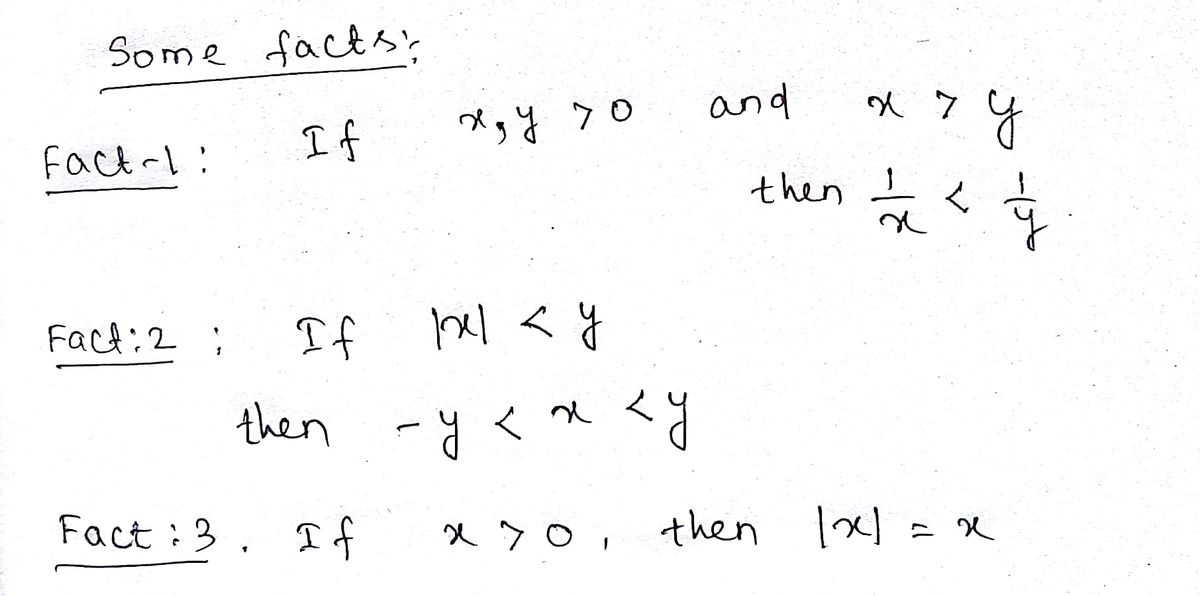 Some facts:
Fact-1: If x, y > 0 and x > y
then 1/x < 1/y.
Fact:2 : If |x| < y
then -y < x < y
Fact:3. If x > 0, then |x| = x